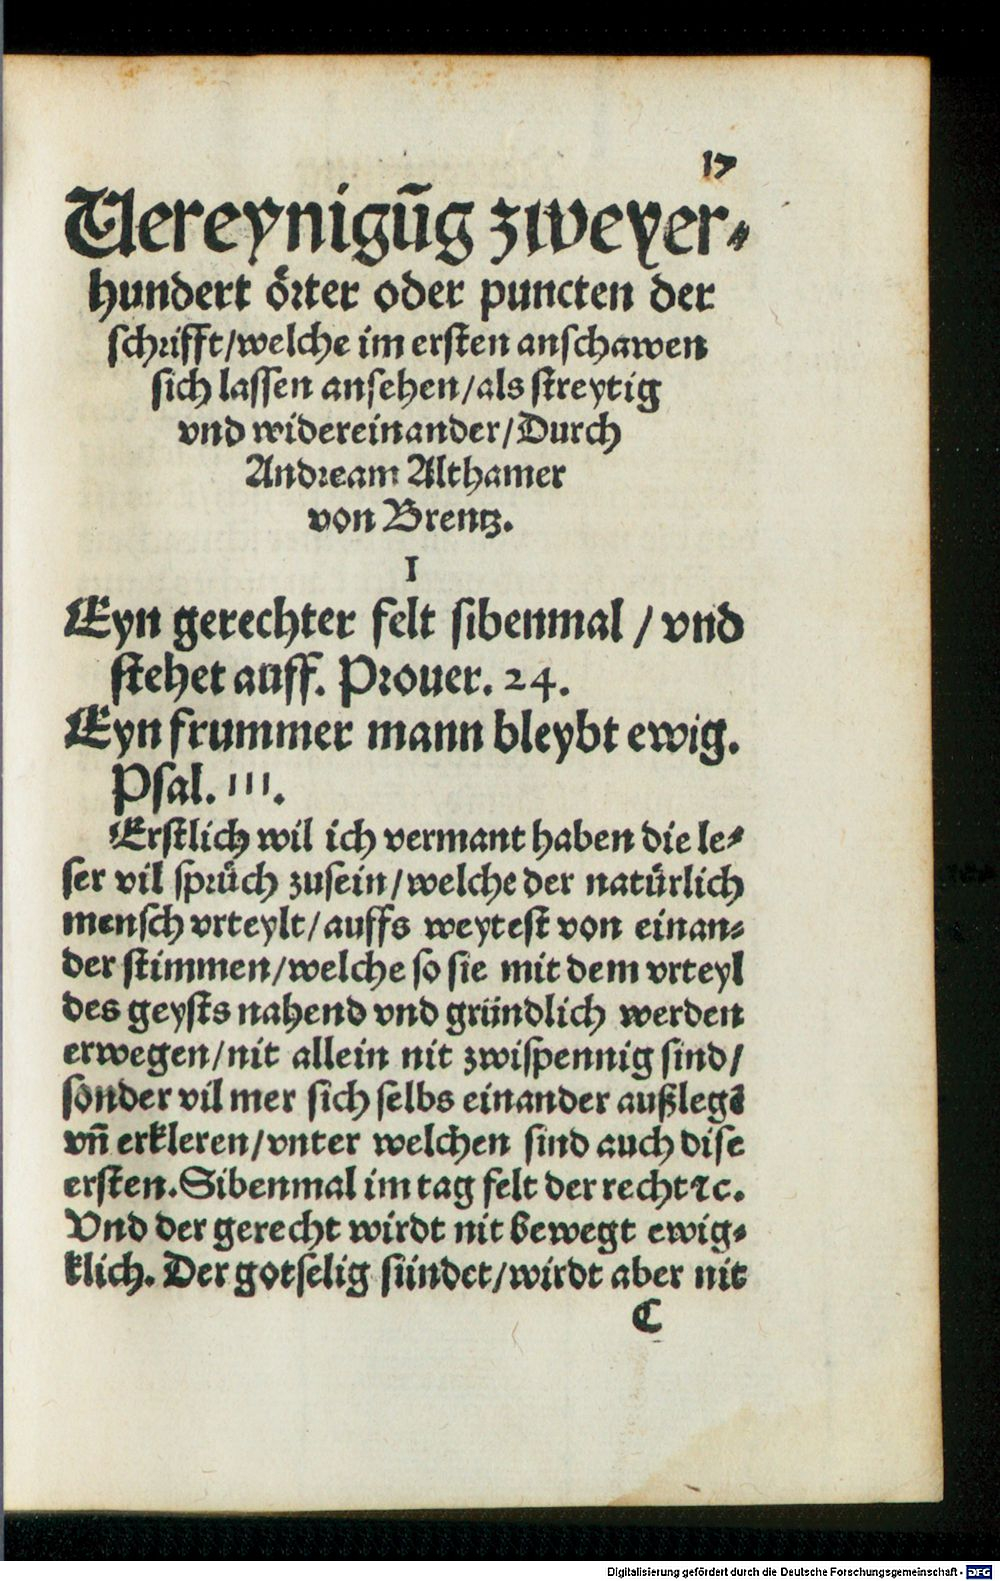 17
Uereynigūg zweyer⸗
hundert örter oder puncten der
schrifft/welche im ersten anschawen
sich lassen ansehen/als streytig
vnd widereinander/Durch
Andream Althamer
von Brentz.
I
Eyn gerechter felt sibenmal / vnd
stehet auff. Prouer. 24.
Eyn frummer mann bleybt ewig.
Psal. 111.
Erstlich wil ich vermant haben die le⸗
ser vil sprüch zusein/welche der natürlich
mensch vrteylt/auffs weytest von einan⸗
der stimmen/welche so sie mit dem vrteyl
des geysts nahend vnd gründlich werden
erwegen/nit allein nit zwispennig sind/
sonder vil mer sich selbs einander außlegē
vn̄ erkleren/vnter welchen sind auch dise
ersten. Sibenmal im tag felt der recht ⁊c.
Vnd der gerecht wirdt nit bewegt ewig⸗
klich. Der gotselig sündet/wirdt aber nit
C
Digitalisierung gefördert durch die Deutsche Forschungsgemeinschaft - DFG